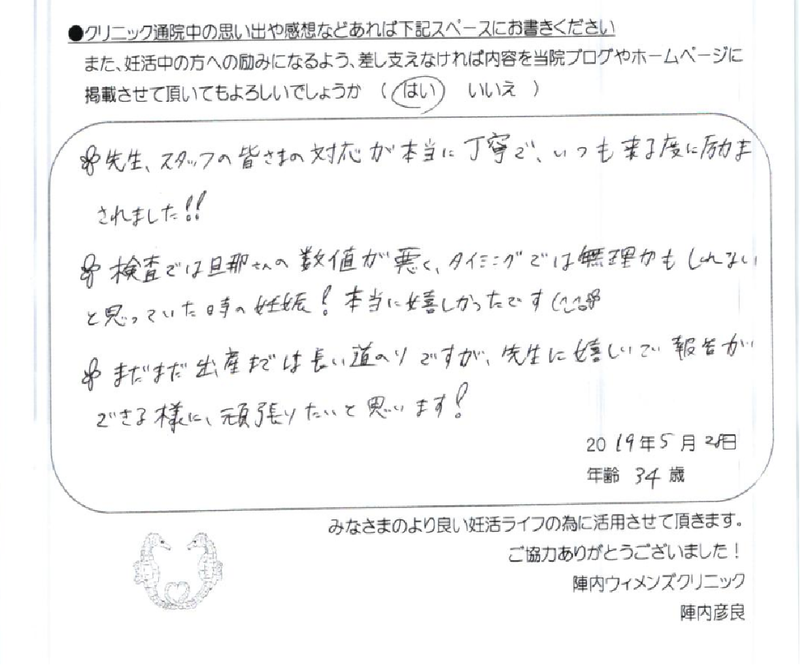 ●クリニック通院中の思い出や感想などあれば下記スペースにお書きください
また、妊活中の方への励みになるよう、差し支えなければ内容を当院ブログやホームページに
掲載させて頂いてもよろしいでしょうか （ はい　いいえ ）
先生、スタッフの皆さまの対応が本当に丁寧で、いつも来る度に励ま
されました!!
検査では旦那さんの数値が悪く、タイミングでは無理かもしれない
と思っていた時の妊娠! 本当に嬉しかったです(^^)
まだまだ出産までは長い道のりですが、先生に嬉しいご報告が
できる様に、頑張りたいと思います!
2019年5月28日
年齢 34 歳
みなさまのより良い妊活ライフの為に活用させて頂きます。
ご協力ありがとうございました！
陣内ウィメンズクリニック
陣内彦良